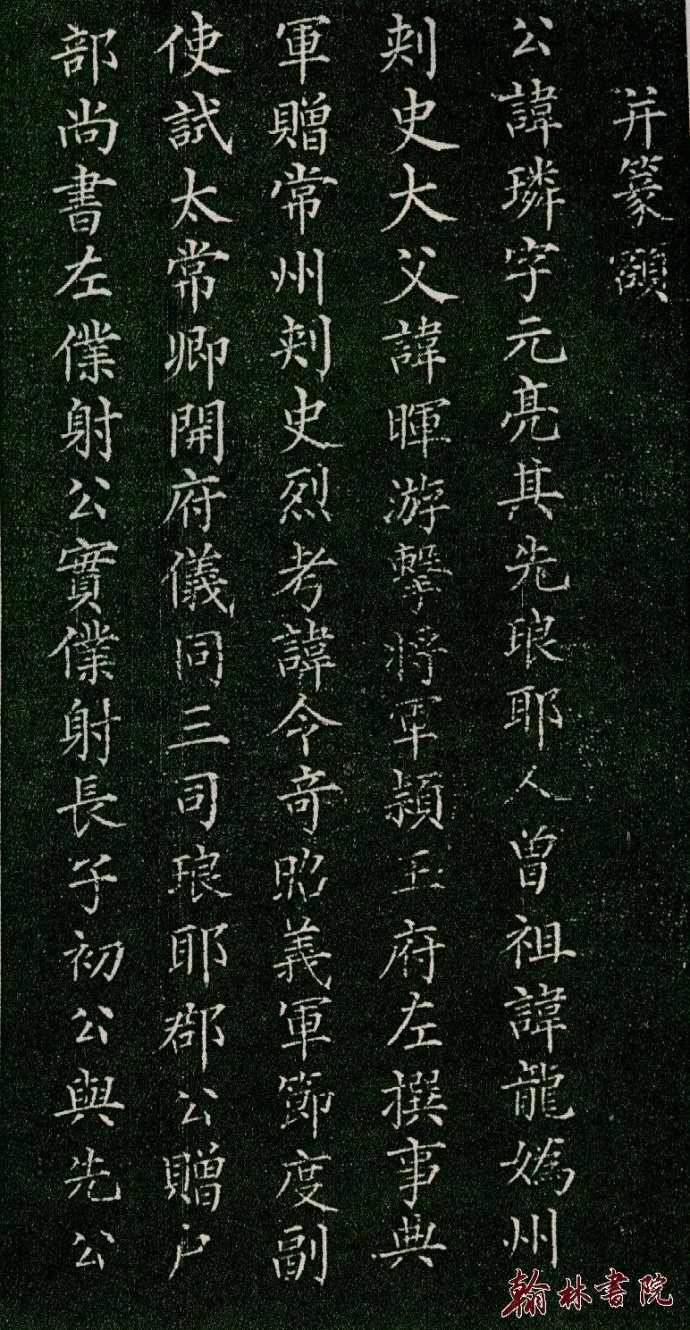 并篆額
公諱璘字元亮其先琅耶人曾祖諱龍媯州
刺史大父諱暉游擊將軍潁王府左撰事典
軍贈常州刺史烈考諱令奇昭義軍節度副
使試太常卿開府儀同三司琅耶郡公贈户
部尚書左僕射公實僕射長子初公與先公
翰林書院